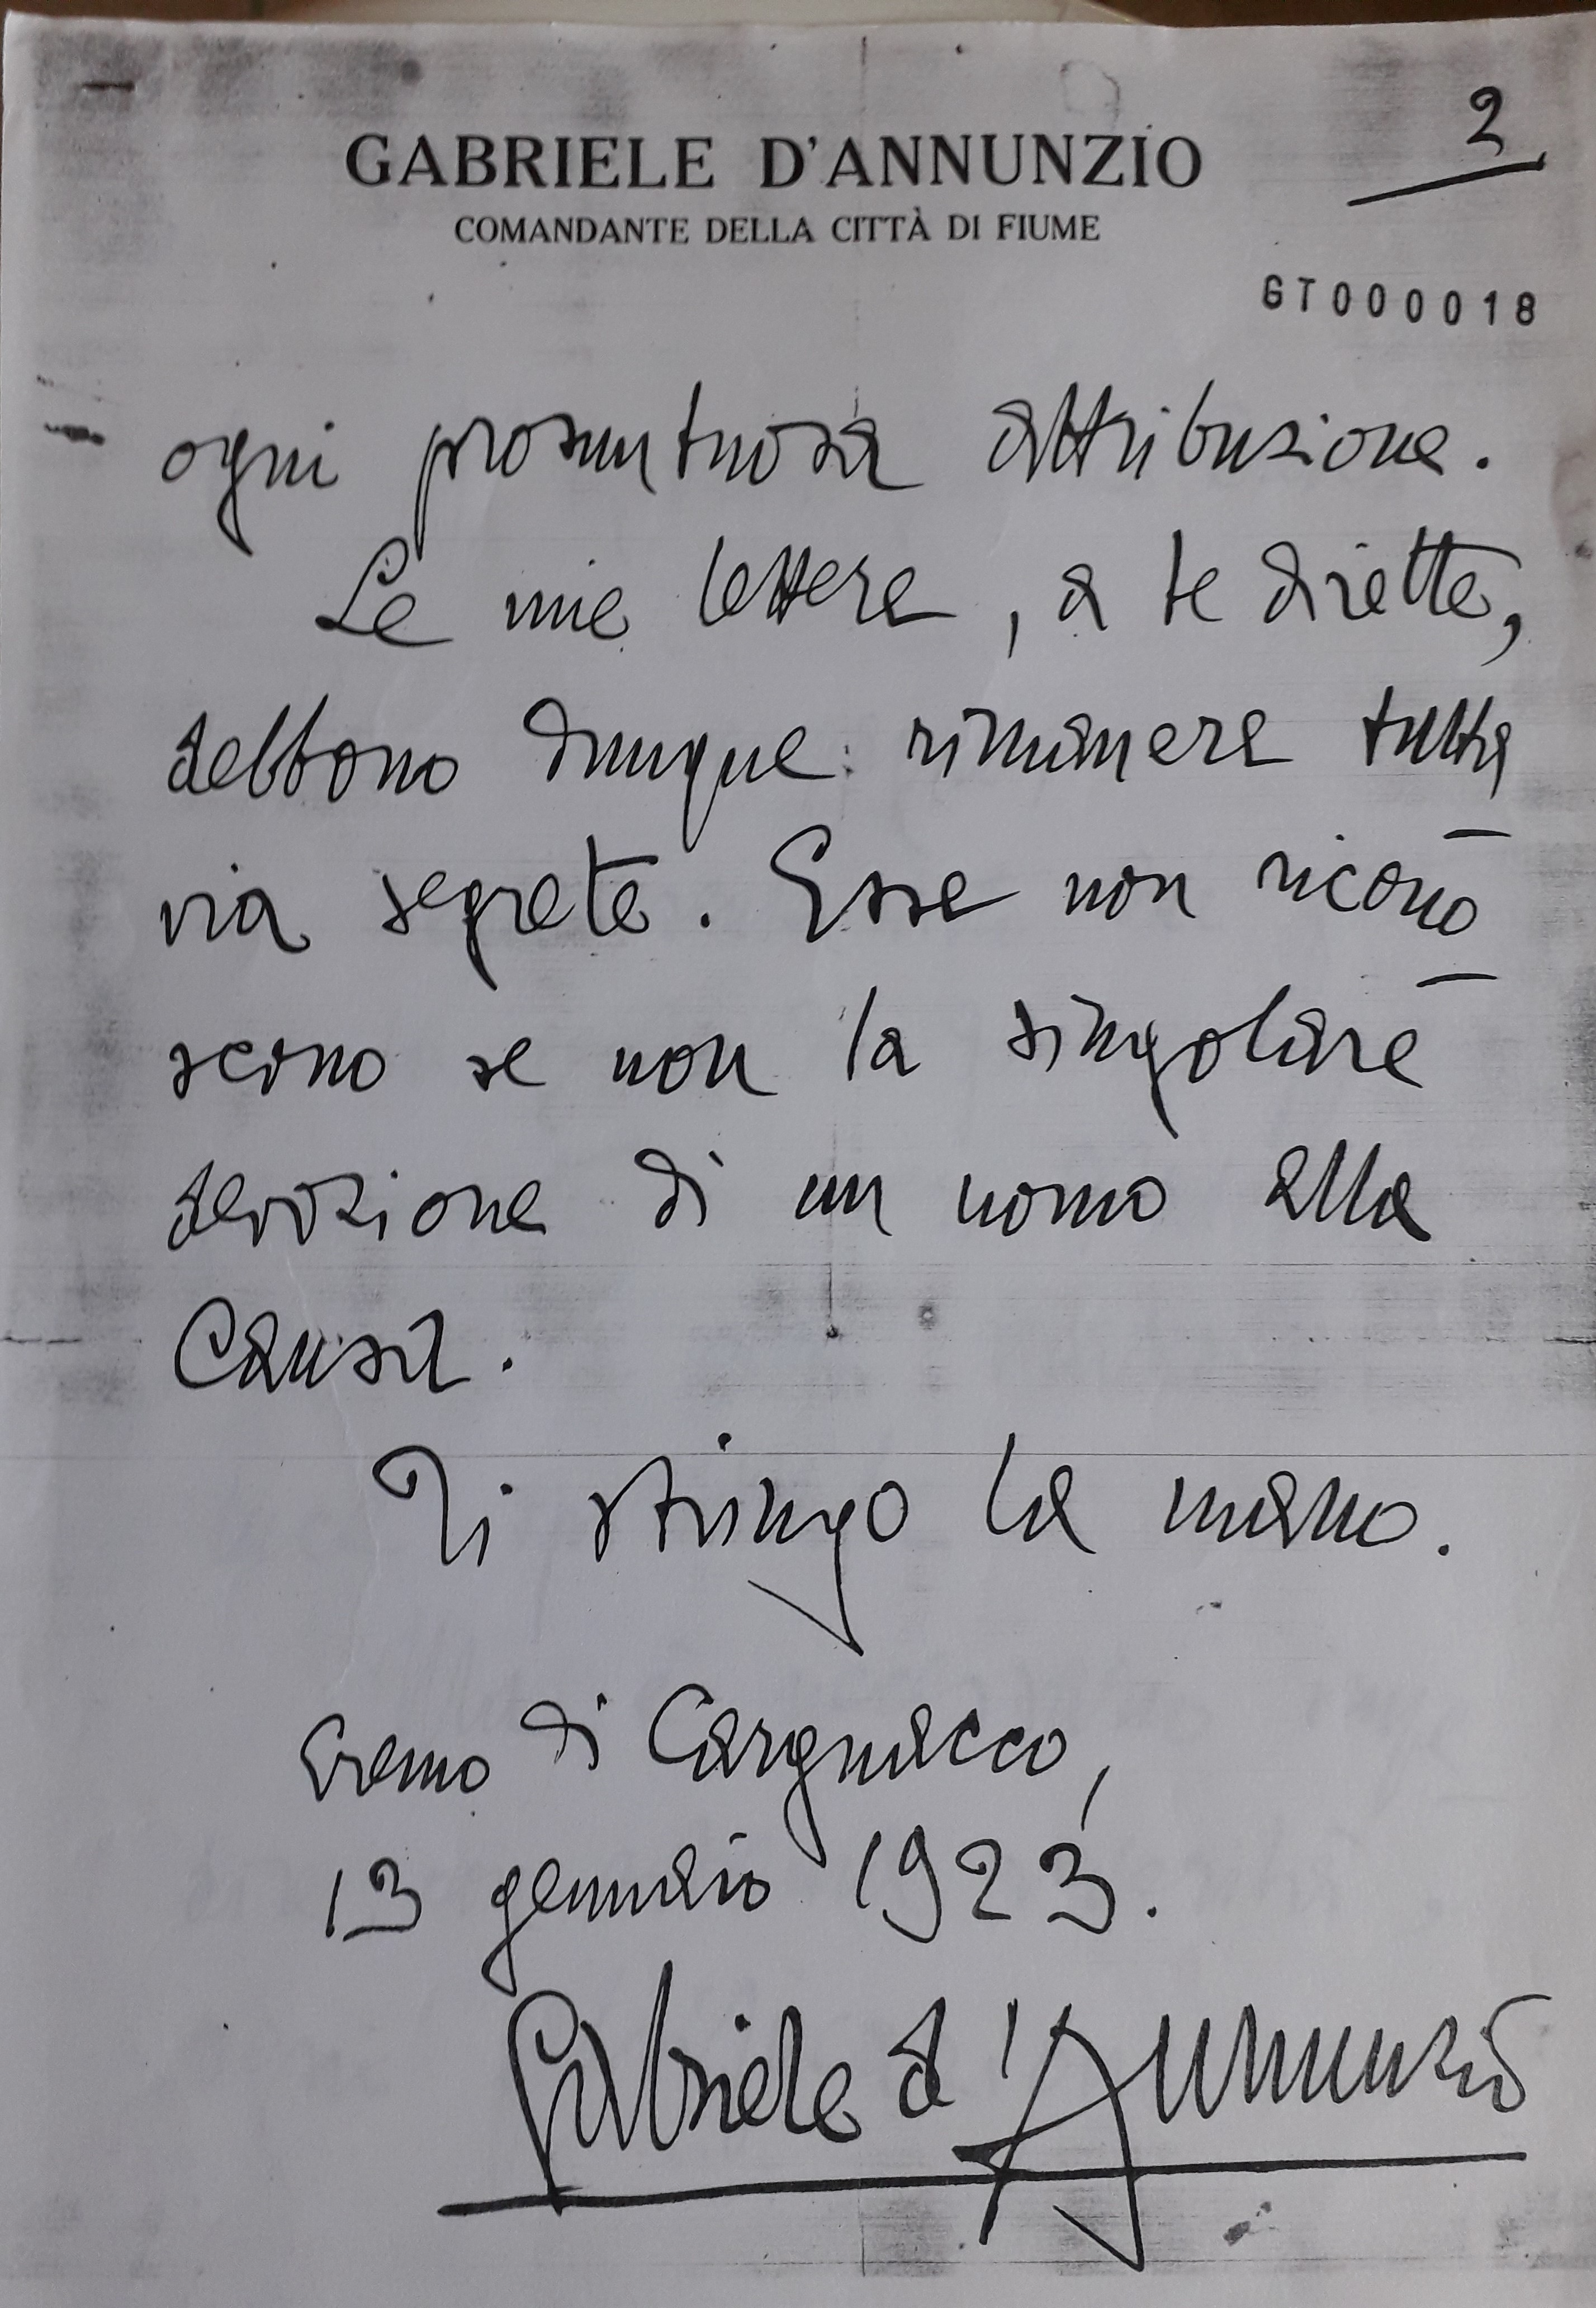 2
GABRIELE D'ANNUNZIO
COMANDANTE DELLA CITTÀ DI FIUME
GT000018
ogni prosuntuosa attribuzione.
Le mie lettere, a te dirette,
debbono dunque rimanere tutta
via segrete. Esse non ricono
scono se non la singolare
devozione di un uomo alla
Causa.
Ti stringo la mano.
Eremo di Cargnacco,
13 gennaio 1923.
Gabriele d'Annunzio